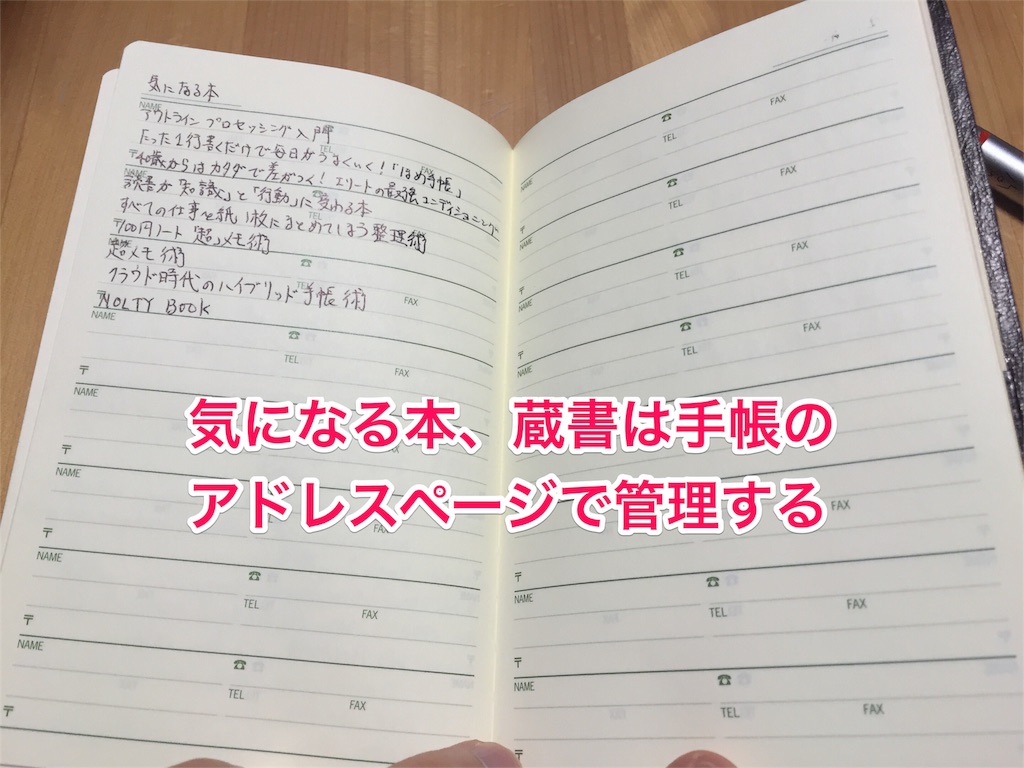 気になる本
NAME
アウトライン プロセッシング入門
TEL
たった1行書くだけで毎日がうまくいく!「ほめ手帳」
FAX
〒
40歳からはカラダで差がつく! エリートの最強コンディショニング
NAME
読書が「知識」と「行動」に変わる本
TEL
すべての仕事を紙1枚にまとめてしまう整理術
〒
100円ノート「超」メモ術
NAME
超メモ術
TEL
クラウド時代のハイブリッド手帳術
FAX
〒
NOLTY BOOK
NAME
☎
TEL
FAX
〒
NAME
〒
NAME
〒
FAX
NAME
☎
TEL
FAX
〒
NAME
☎
TEL
FAX
〒
1
☎
FAX
TEL
NAME
〒
☎
FAX
TEL
NAME
〒
☎
FAX
TEL
NAME
〒
☎
FAX
TEL
NAME
FAX
〒
☎
NAME
TEL
FAX
〒
☎
NAME
TEL
FAX
〒
気になる本、蔵書は手帳の
アドレスページで管理する